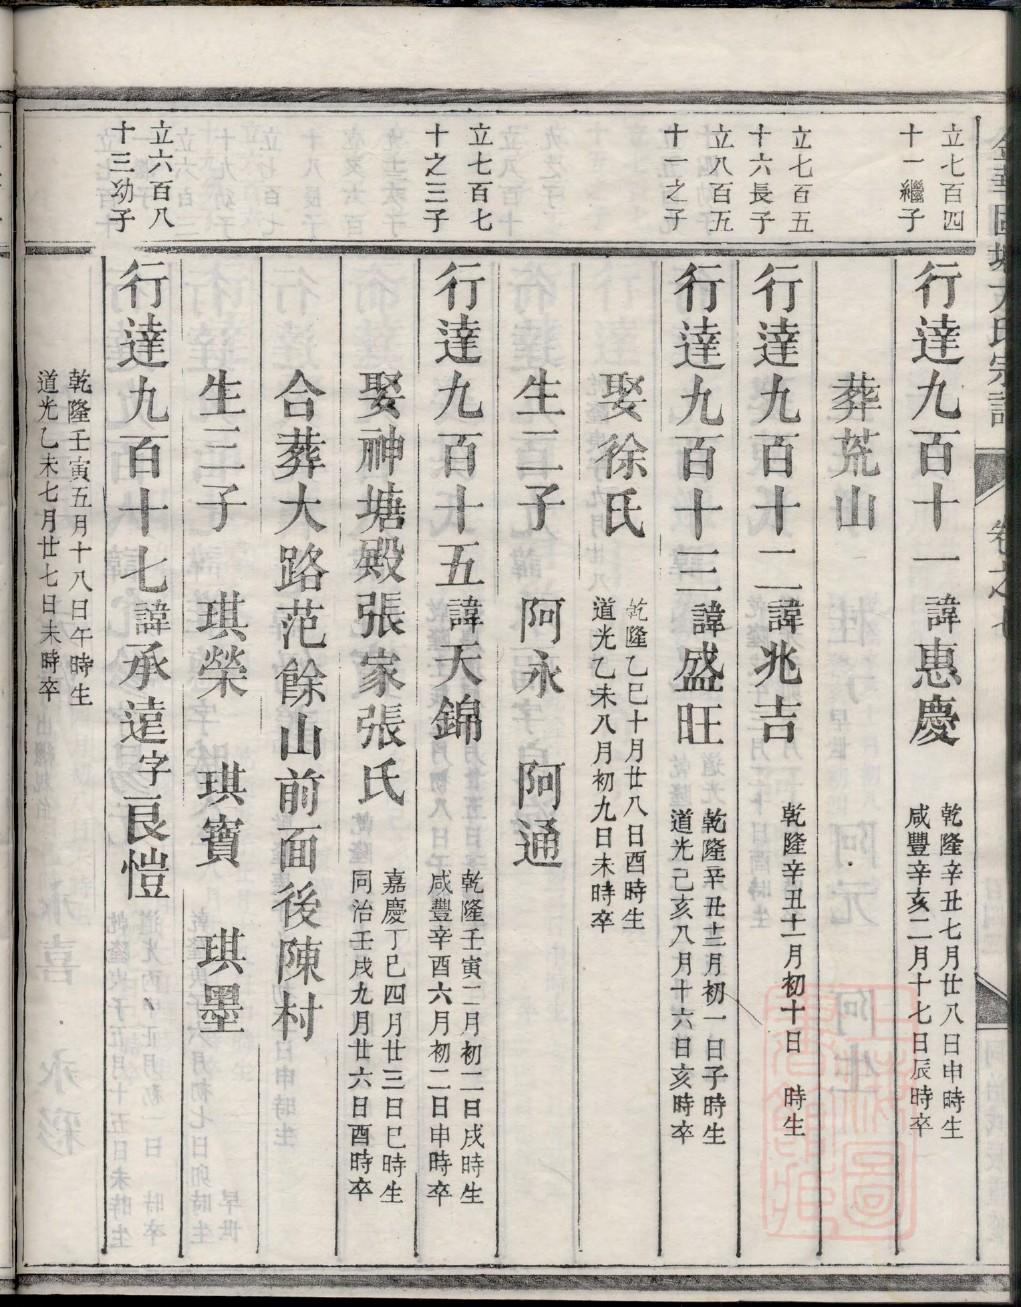 立七百四
十一繼子
行達九百十一諱惠慶
乾隆辛丑七月廿八日申時生
咸豐辛亥二月十七日辰時卒
葬荒山
立七百五
十六長子
行達九百十二諱兆吉
乾隆辛丑十一月初十日 時生
立八百五
十一之子
行達九百十三諱盛旺
乾隆辛丑十二月初一日子時生
道光己亥八月十六日亥時卒
娶徐氏
乾隆乙巳十月廿八日酉時生
道光乙未八月初九日未時卒
生二子 阿永 阿通
立七百七
十之三子
行達九百十五諱天錦
乾隆壬寅二月初二日戌時生
咸豐辛酉六月初二日申時卒
娶神塘殿張家張氏
嘉慶丁巳四月廿三日巳時生
同治壬戌九月廿六日酉時卒
合葬大路范餘山前面後陳村
生三子 琪榮 琪寶 琪墨
立六百八
十三幼子
行達九百十七諱承遠字良愷
乾隆壬寅五月十八日午時生
道光乙未七月廿七日未時卒